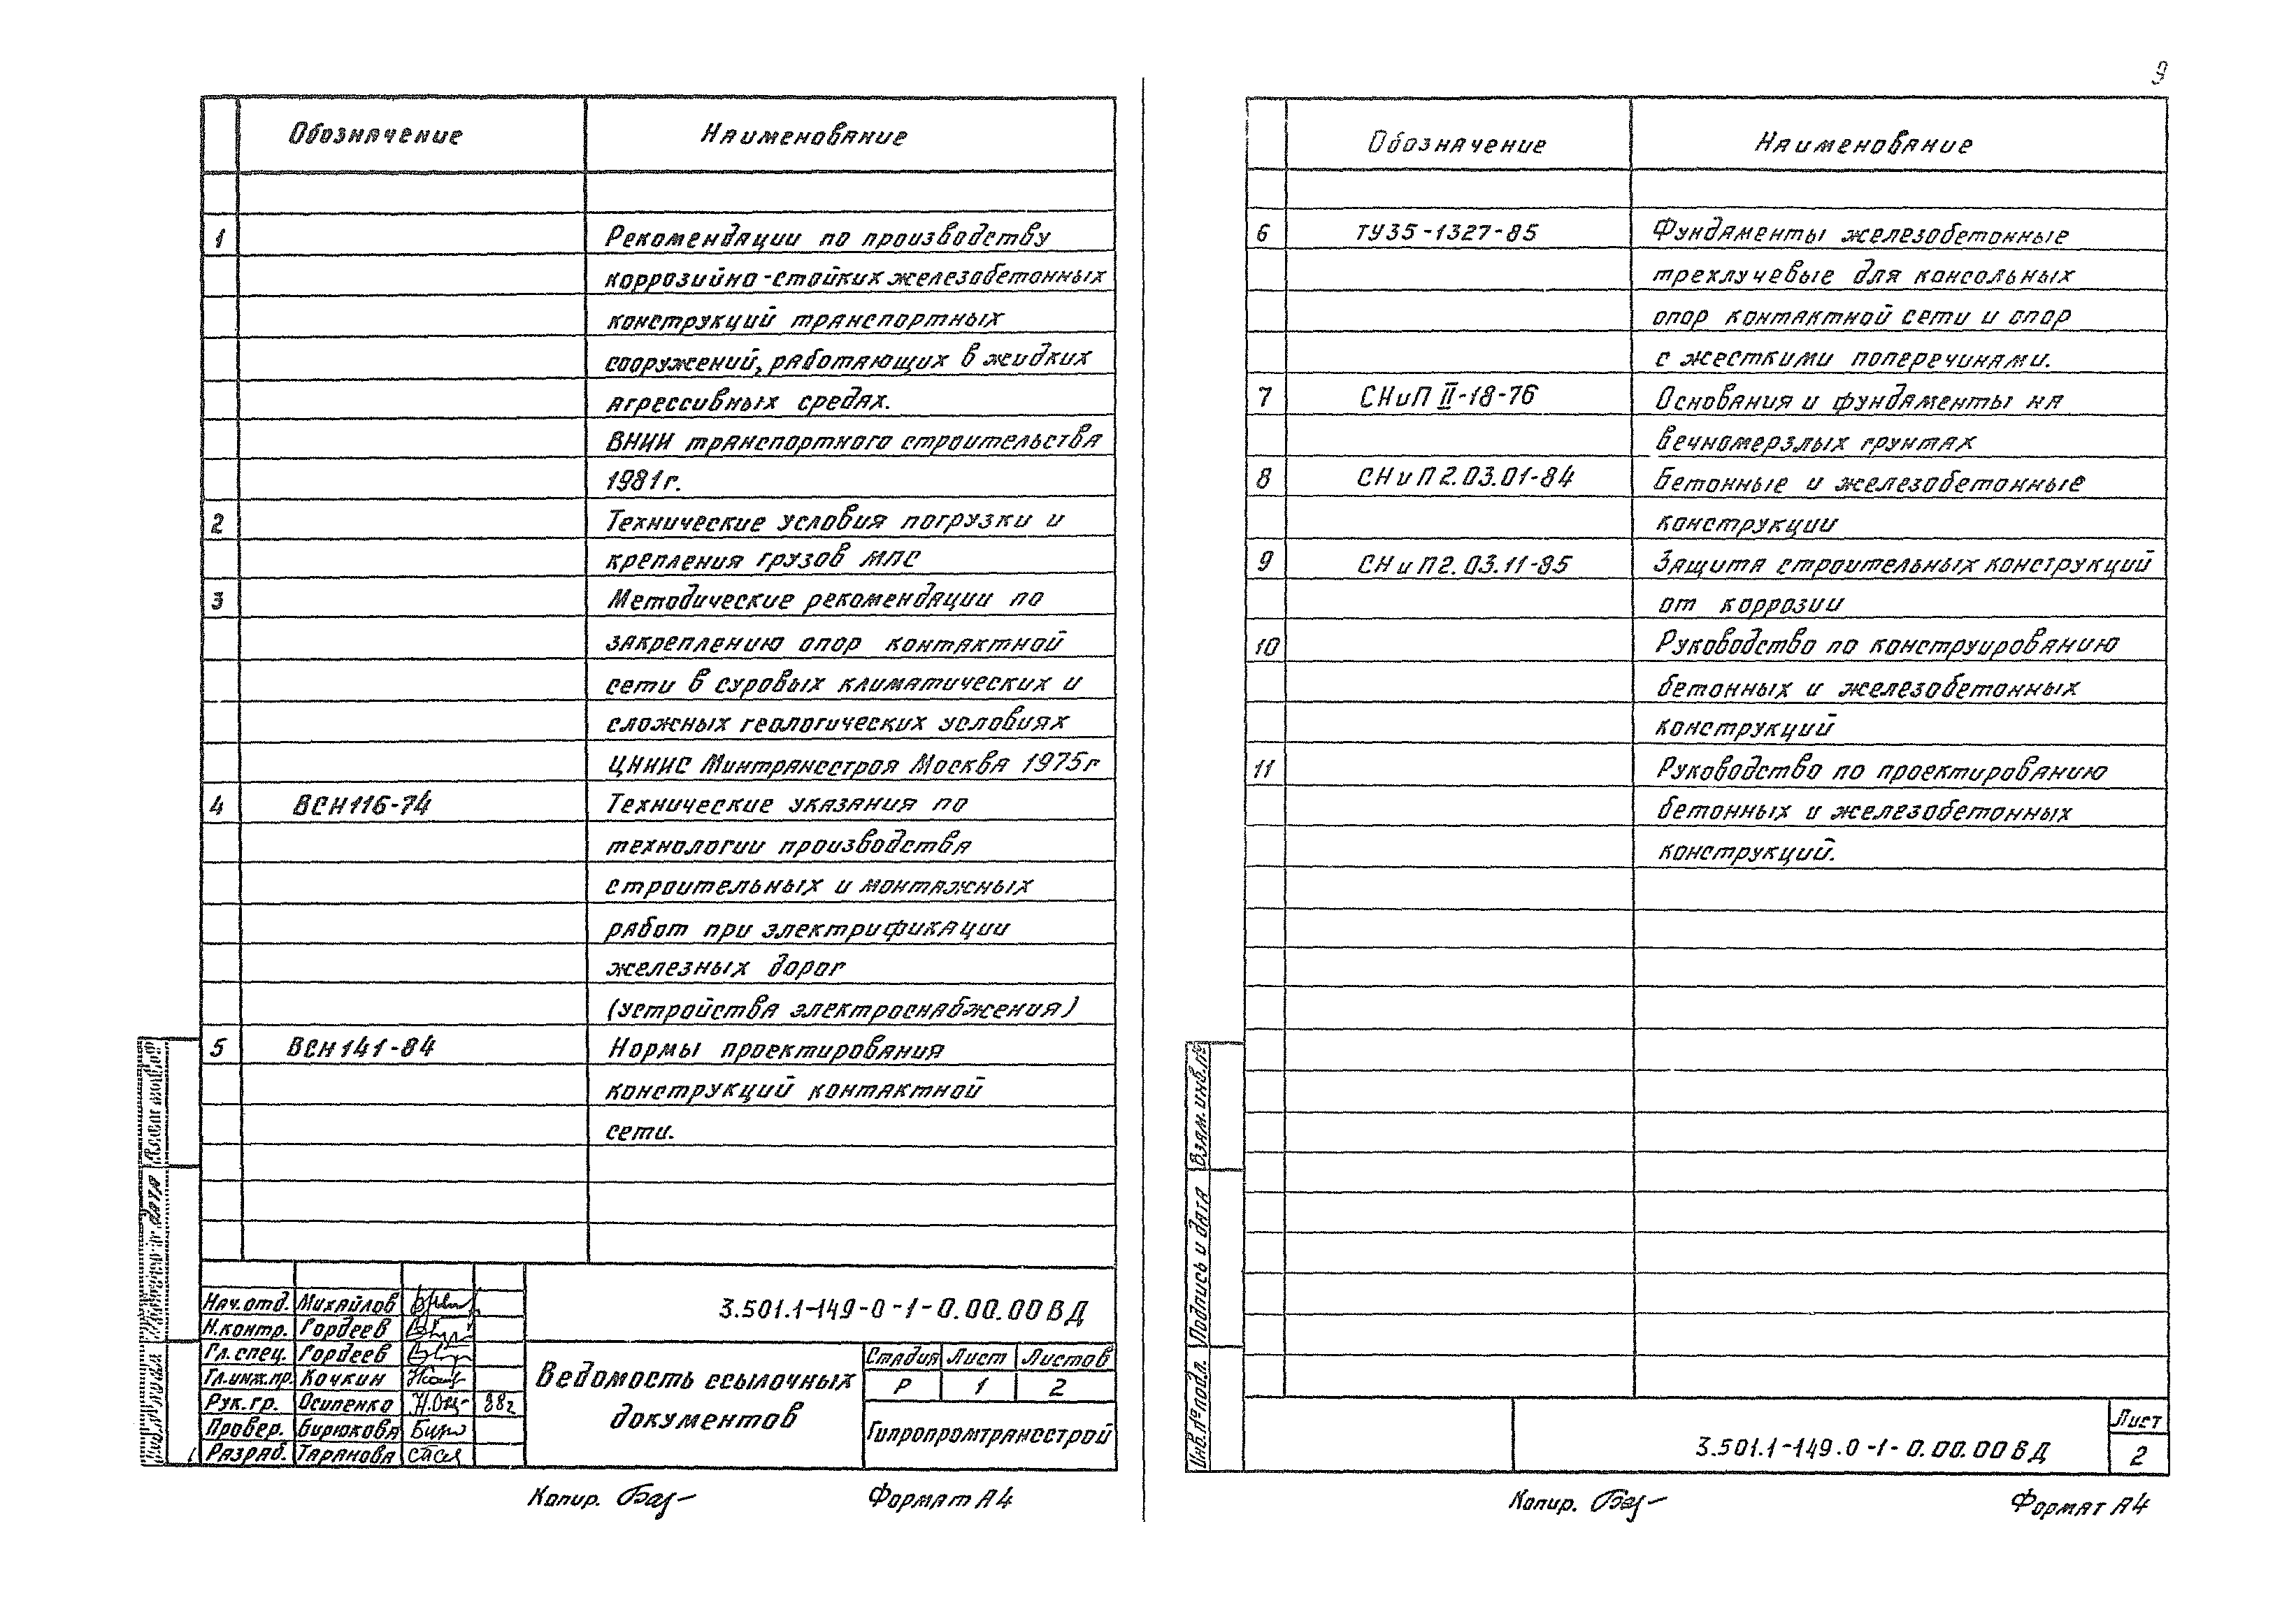 9
Обозначение Наименование
1 Рекомендации по производству
коррозийно-стойких железобетонных
конструкций транспортных
сооружений, работающих в жидких
агрессивных средах.
ВНИИ транспортного строительства
1981г.
2 Технические условия погрузки и
крепления грузов МПС
3 Методические рекомендации по
закреплению опор контактной
сети в суровых климатических и
сложных геологических условиях
ЦНИИС Минтрансстроя Москва 1975г
4 ВСН116-74 Технические указания по
технологии производства
строительных и монтажных
работ при электрификации
железных дорог
(устройства электроснабжения)
5 ВСН141-84 Нормы проектирования
конструкций контактной
сети.
Нач.отд. Михайлов
Н.контр. Гордеев
Гл.спец. Гордеев
Гл.инж.пр. Кочкин
Рук.гр. Осипенко 88г
Провер. Бирюкова
Разраб. Таранова
3.501.1-149-0-1-0.00.00 ВД
Ведомость ссылочных
документов
Стадия Лист Листов
Р 1 2
Гипропромтрансстрой
дата
Копир. Формат А4
Обозначение Наименование
6 ТУ35-1327-85 Фундаменты железобетонные
трехлучевые для консольных
опор контактной сети и опор
с жесткими поперечинами.
7 СНиП II-18-76 Основания и фундаменты на
вечномерзлых грунтах
8 СНиП2.03.01-84 Бетонные и железобетонные
конструкции
9 СНиП2.03.11-85 Защита строительных конструкций
от коррозии
10 Руководство по конструированию
бетонных и железобетонных
конструкций
11 Руководство по проектированию
бетонных и железобетонных
конструкций.
Взам.инв.№
Подпись и дата
Инв.№ подл.
3.501.1-149.0-1-0.00.00 ВД
Лист
2
Копир. Формат А4